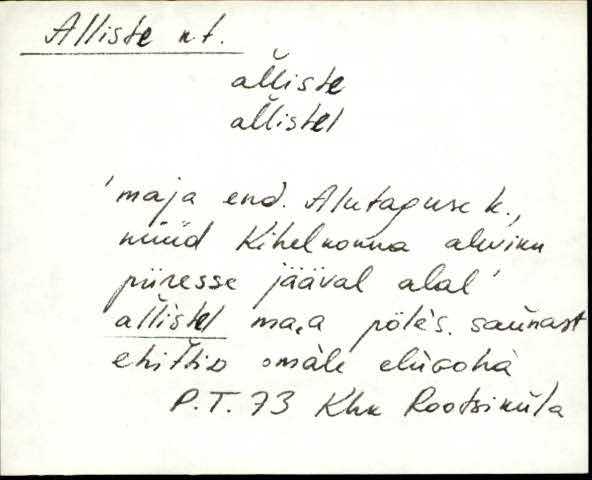 Alliste n.t.
al̆liste
al̆listel
'maja end. Alutaguse k.,
nüüd Kihelkonna aleviku
piiresse jääval alal'
al̆listel ma,a põle's. saunast
omale
P.T. 73 Khk Rootsiküla